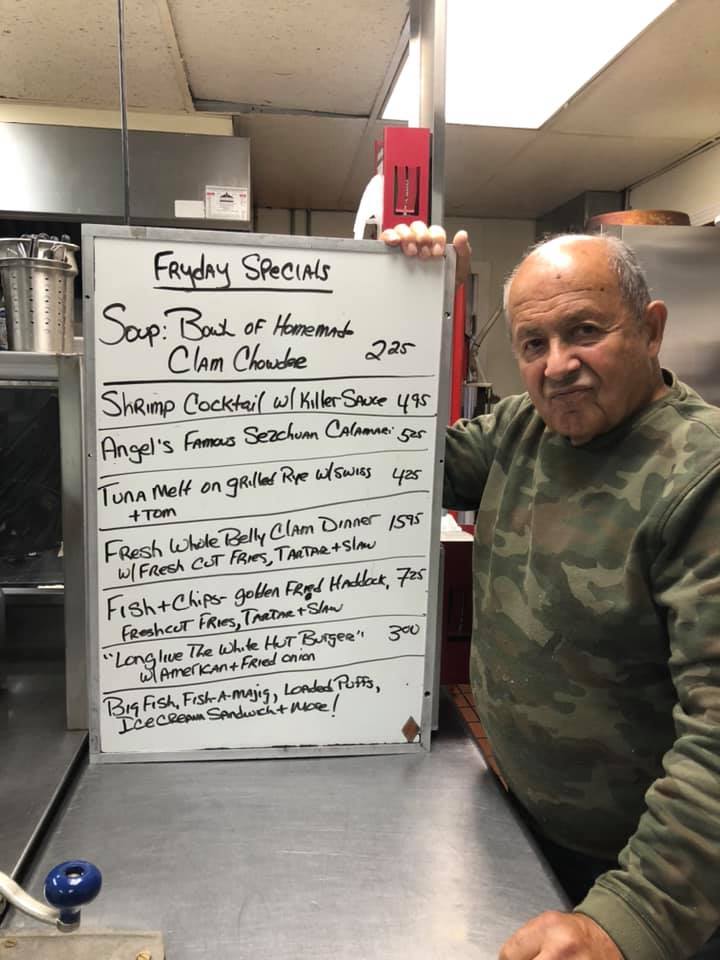 Fryday Specials
Soup: Bowl of Homemade
Clam Chowdee 225
Shrimp Cocktail w/ Killer Sauce 495
Angel's Famous Sezchuan Calamari 525
Tuna Melt on grilled Rye w/ swiss 425
+ Tom
Fresh Whole Belly Clam Dinner 1595
w/ Fresh Cut Fries, Tartar + Slaw
Fish + Chips - golden Fried Haddock, 725
Freshcut Fries, Tartar + Slaw
"Long live The White Hut Burger" 300
w/ American + Fried onion
Big Fish, Fish-A-Majig, Loaded Puffs,
Ice Cream Sandwich + More!